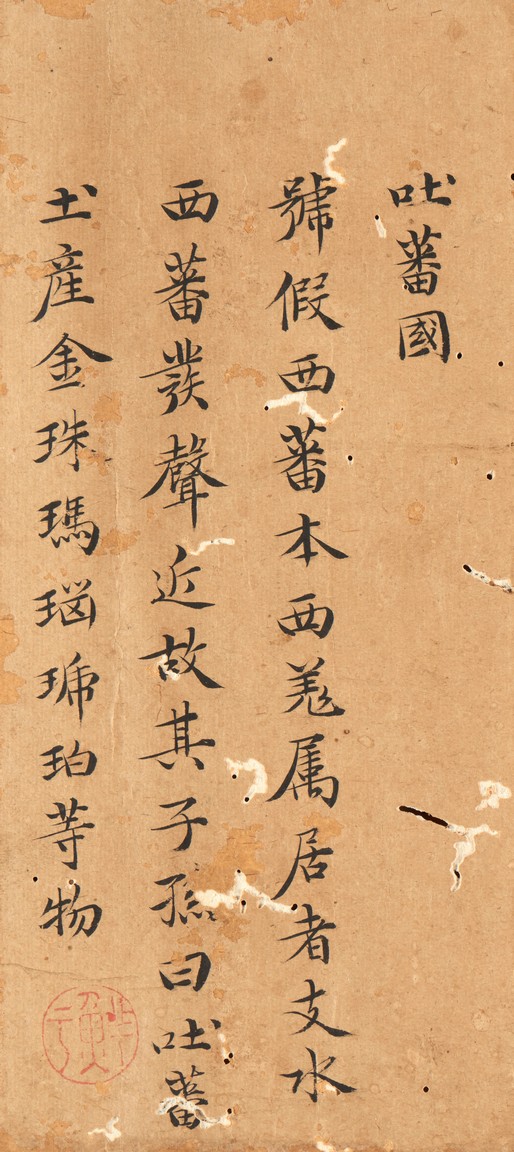 吐蕃國
號假西蕃本西羗属居者支水
西蕃發聲近故其子孫曰吐蕃
土産金珠瑪瑙琥珀䓁物